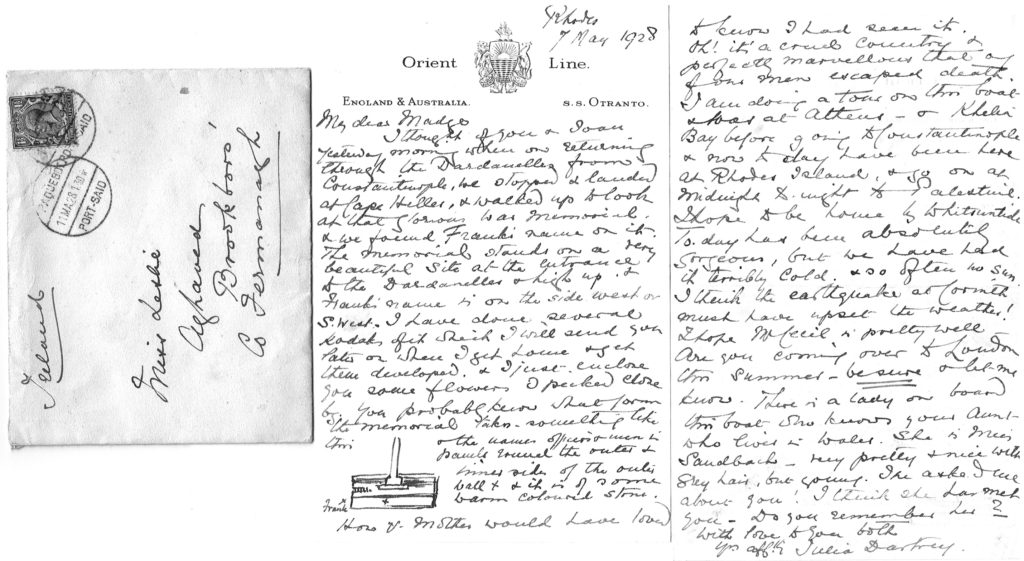 PORT-SAID
11 MA 28
Ireland
Miss Leslie
Aghavea
Brookboro'
Co Fermanagh
Rhodes
7 May 1928
Orient Line.
ENGLAND & AUSTRALIA. S.S. OTRANTO.
My dear Madge
I thought of you & Joan
yesterday morng when on returning
through the Dardanelles from
Constantinople, we stopped & landed
at Cape Helles, & walked up to look
at that glorious War Memorial.
& we found Frank's name on it.
The memorial stands on a very
beautiful site at the entrance
to the Dardanelles & high up. &
Frank's name is on the side west or
S. West. I have done several
kodaks of it which I will send you
later on when I get home & get
them developed. & I just enclose
you some flowers I picked close
by. You probably know what form
the memorial takes - something like
this
& the names officers & men in
panels round the outer &
inner sides of the outer
wall & it is of some
warm coloured stone.
Frank
How yr Mother would have loved
to know I had seen it.
Oh! it's a cruel country &
perfectly marvellous that any
of our men escaped death.
I am doing a tour on this boat
& was at Athens - &
Bay before going to Constantinople
& now to day have been here
at Rhodes Island, & go on at
Midnight to night to Palestine.
I hope to be home by Whitsuntide
To day has been absolutely
gorgeous, but we have had
it terribly cold. & so often no sun
I think the earthquake at Corinth
must have upset the weather!
I hope McCecil is pretty well
Are you coming over to London
this Summer - be sure & let me
know. There is a lady on board
this boat who knows your Aunt
who lives in Wales. She is Miss
Sandbach - very pretty & nice with
grey hair, but young. She asked me
about you! I think she has met
you - Do you remember her?
With love to you both
Yrs affly Julia Dartrey.